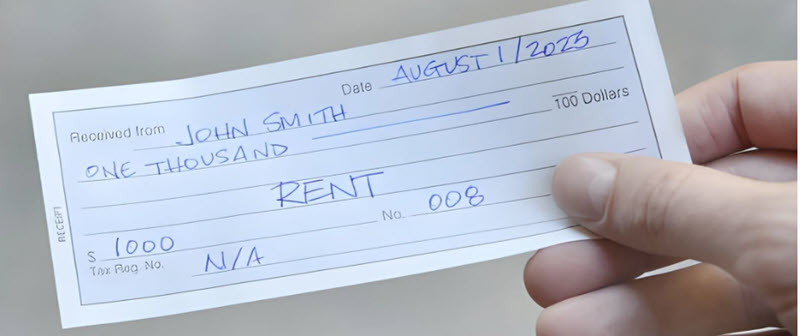 Date AUGUST 1/2023
Received from JOHN SMITH
ONE THOUSAND 100 Dollars
RENT
No. 008
$ 1000
Tax Reg. No. N/A
RECEIPT